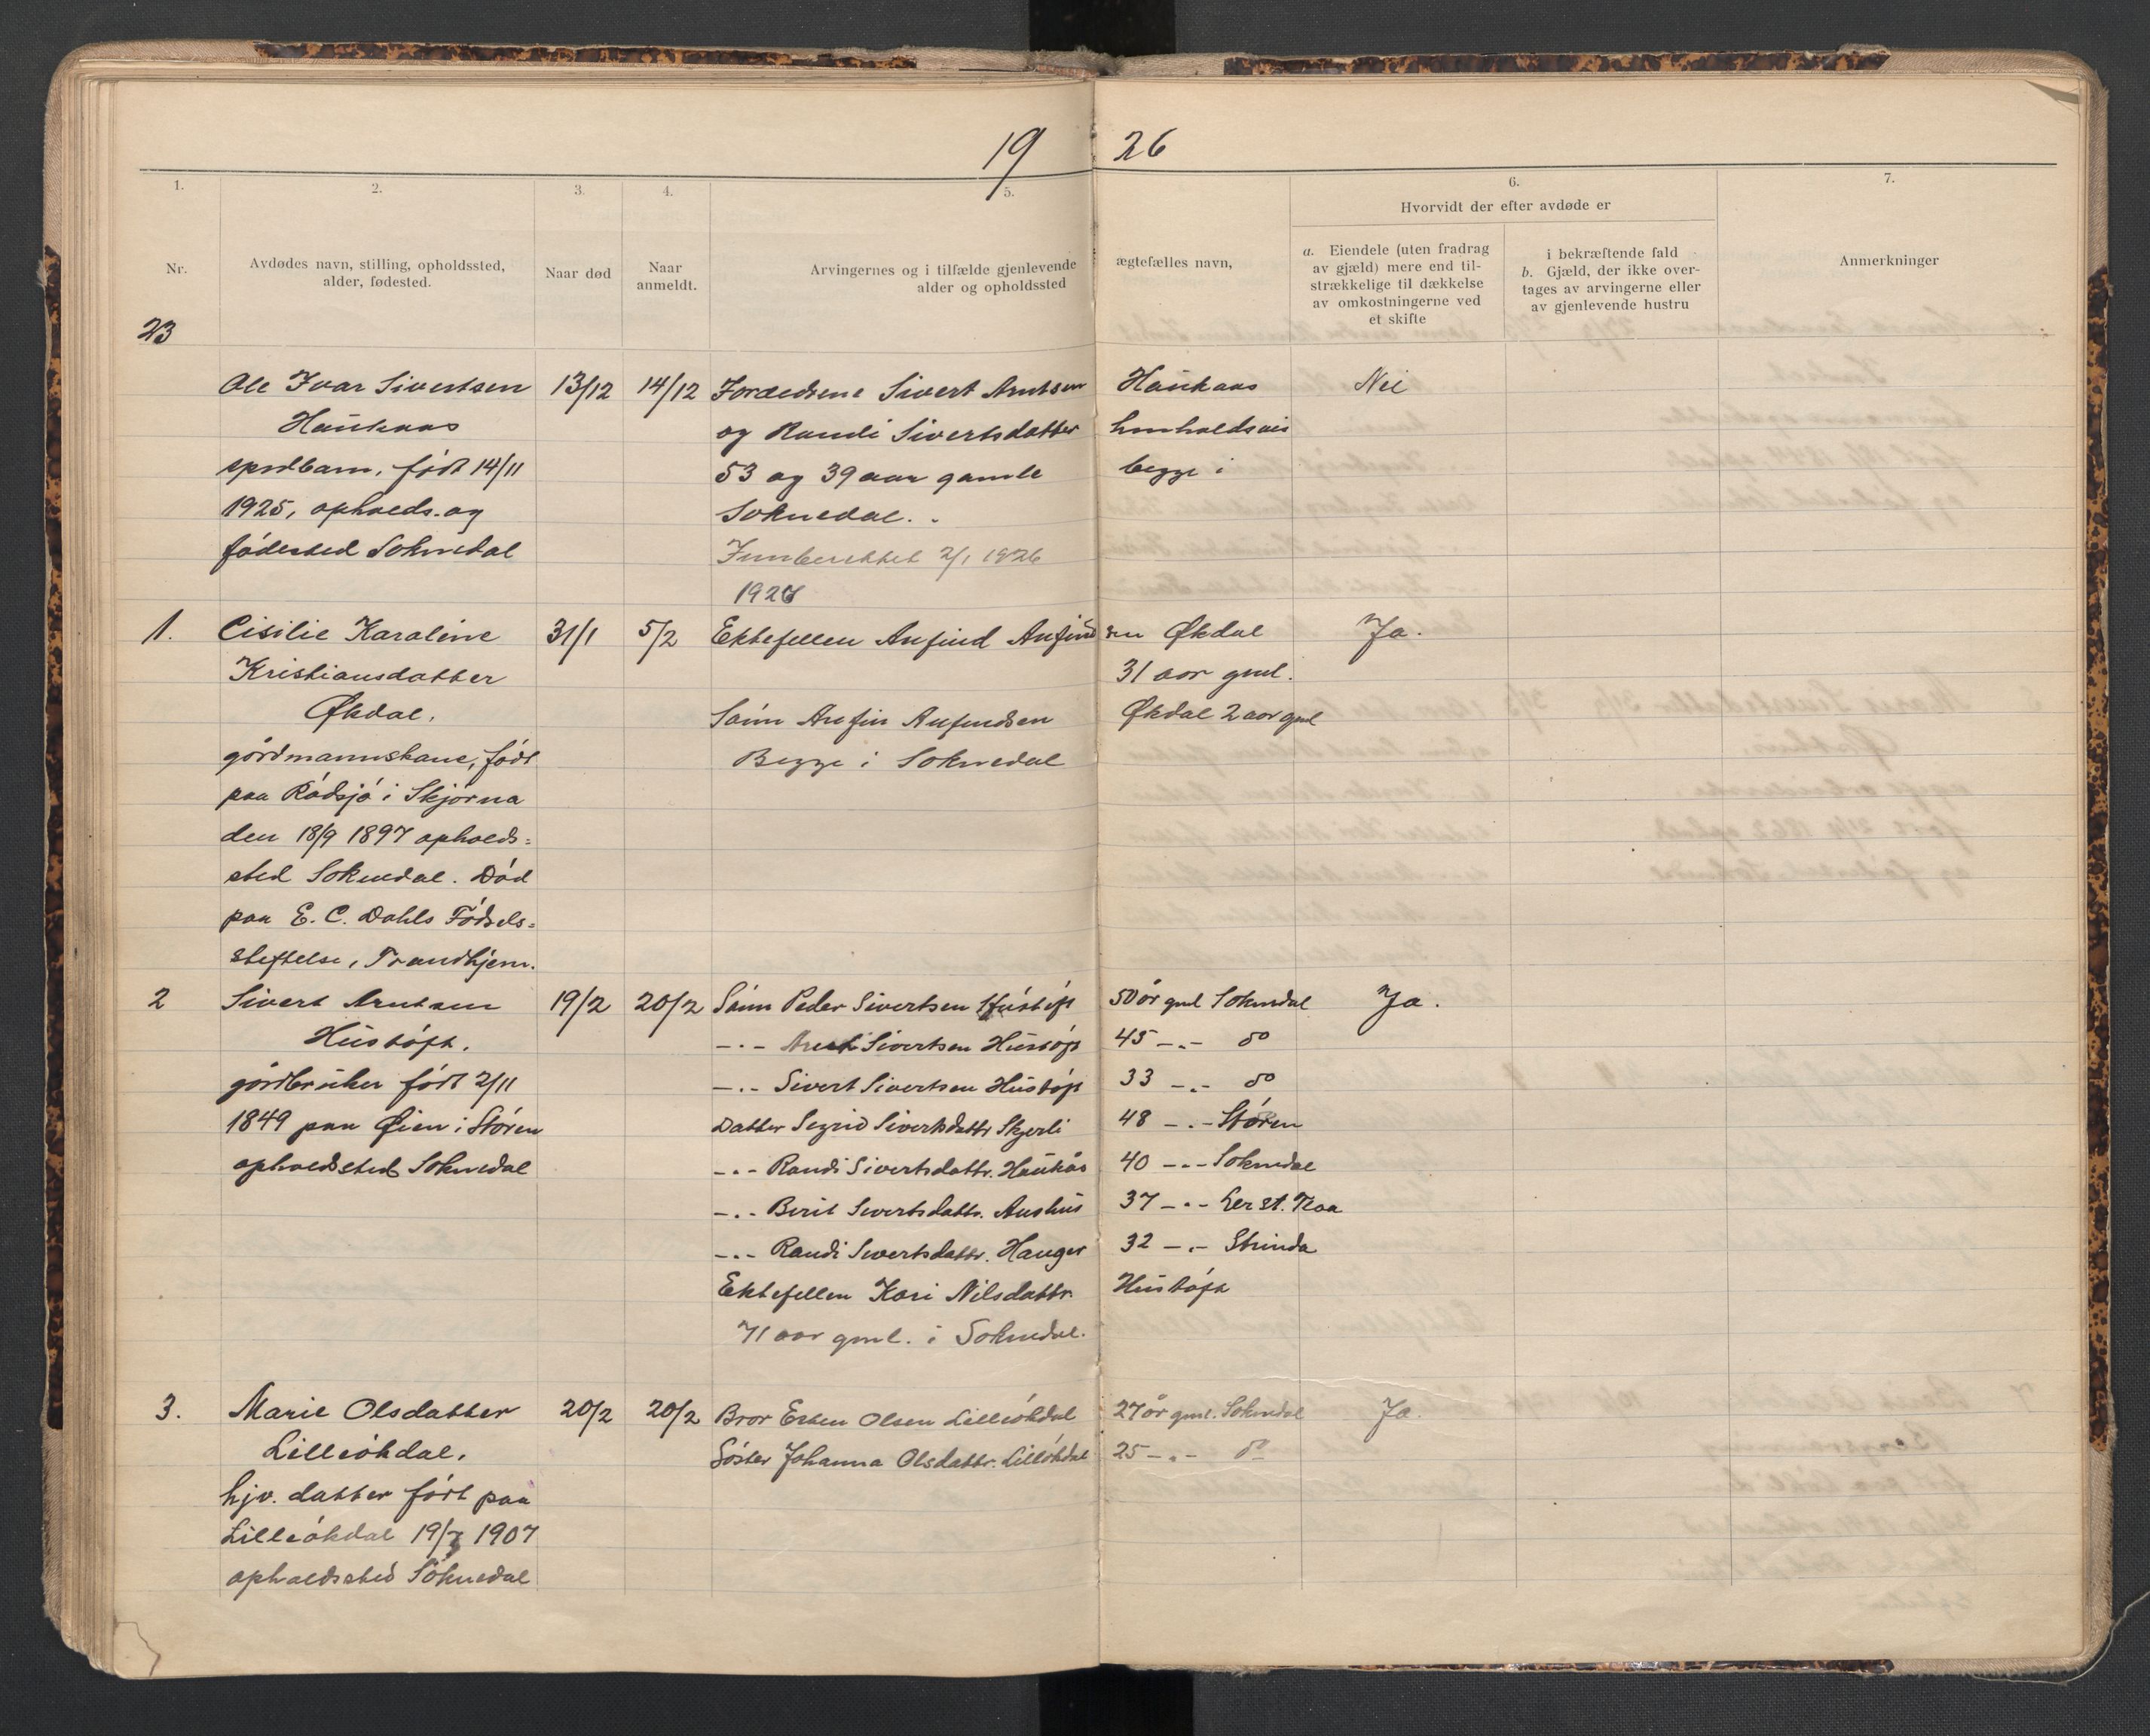 19 26
1. 2. 3. 4. 5. 6. 7.
Hvorvidt der efter avdøde er
Nr.
Avdødes navn, stilling, opholdssted,
alder, fødested.
Naar død
Naar
anmeldt.
Arvingernes og i tilfælde gjenlevende ægtefælles navn,
alder og opholdssted
a. Eiendele (uten fradrag
av gjæld) mere end til-
strækkelige til dækkelse
av omkostningerne ved
et skifte
i bekræftende fald
b. Gjæld, der ikke over-
tages av arvingerne eller
av gjenlevende hustru
Anmerkninger
23
Ole Ivar Sivertsen 13/12 14/12 Forældrene Sivert Arntsen Haukaas Nei
Haukaas og Randi Sivertsdatter henholdsvis
spedbarn, født 14/11 53 og 39 aar gamle begge i
1925, opholds- og Soknedal.
fødested Soknedal Innberettet 2/1 1926
1926
1. Cisilie Karoline 31/1 5/2 Ektefellen Anfind Anfindsen Økdal Ja.
Kristiansdatter 31 aar gml.
Økdal. Sønn Anfin Anfindsen Økdal 2 aar gml
gårdmannskone, født Begge i Soknedal
paa Rødsjø i Skjørna
den 18/9 1897 opholds=
sted Soknedal. Død
paa E. C. Dahls Fødsels=
stiftelse, Trondhjem.
2 Sivert Arntsen 19/2 20/2 Sønn Peder Sivertsen Hustøft 50 år gml Soknedal Ja.
Hustøft. -.- Arnt Sivertsen Hustøft 45 -.- do
gårdbruker født 2/11 -.- Sivert Sivertsen Hustøft 33 -.- do
1849 paa Øien i Støren Datter Sigrid Sivertsdattr Skjerli 48 -.- Støren
opholdsted Soknedal -.- Randi Sivertsdattr. Haukås 40 -.- Soknedal
-.- Berit Sivertsdattr. Aushus 37 -.- Ler st.
-.- Randi Sivertsdattr. Hauger 32 -.- Strinda
Ektefellen Kari Nilsdattr. Hustøft
71 aar gml. i Soknedal.
3. Marie Olsdatter 20/2 20/2 Bror Esten Olsen Lilleøkdal 27 år gml. Soknedal Ja.
Lilleøkdal. Søster Johanna Olsdattr. Lilløkdal 25 -.- do
hjv. datter født paa
Lilleøkdal 19/7 1907
opholdssted Soknedal